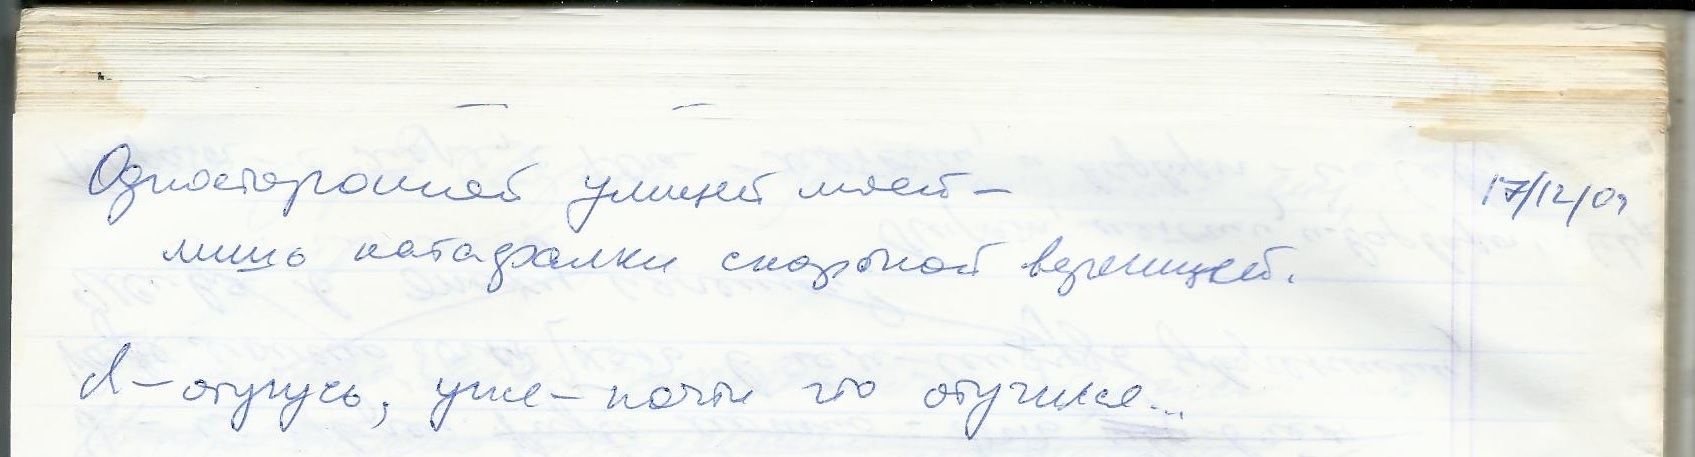 Односторонней улицей моей – 17/12/09
лишь катафалки скорбной вереницей.
Я – отучусь, уже – почти что отучился...